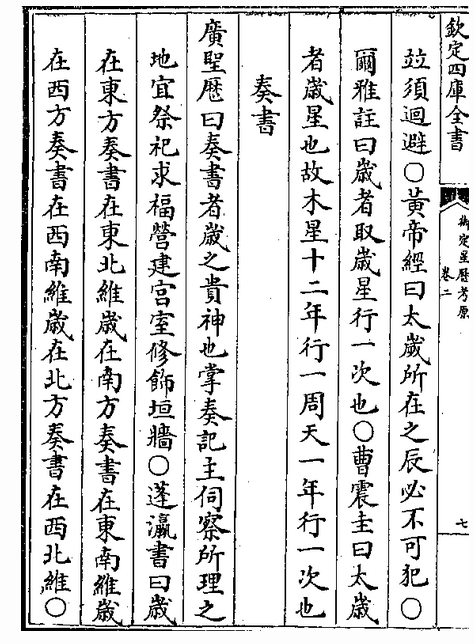 欽定四庫全書
御定星歷考原
卷二
七
竝須迴避○黃帝經曰太歲所在之辰必不可犯○
爾雅註曰歲者取歲星行一次也○曹震圭曰太歲
者歲星也故木星十二年行一周天一年行一次也
奏書
廣聖歷曰奏書者歲之貴神也掌奏記主伺察所理之
地宜祭祀求福營建宮室修飾垣牆○蓬瀛書曰歲
在東方奏書在東北維歲在南方奏書在東南維歲
在西方奏書在西南維歲在北方奏書在西北維○